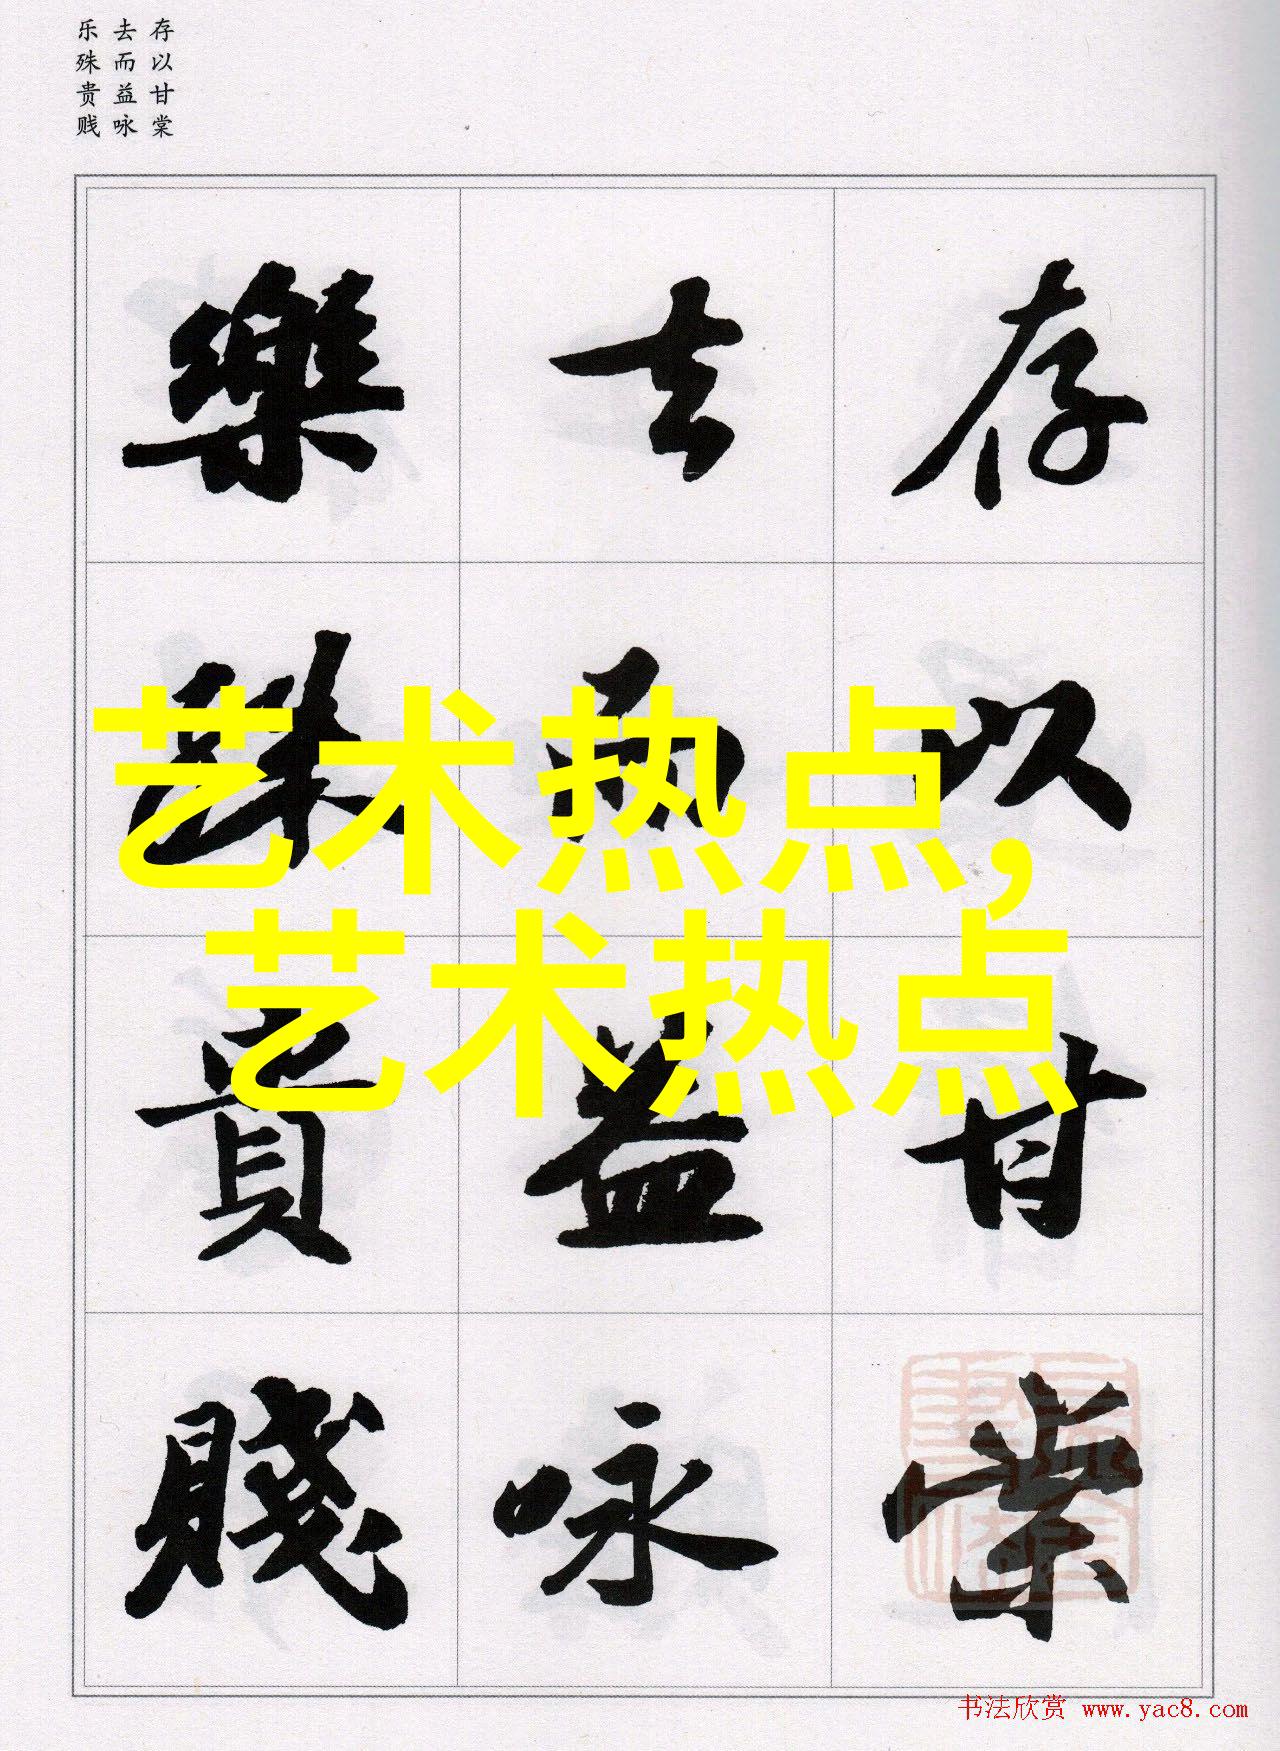 存以甘棠
去而益咏
乐殊贵贱
存以甘棠
去而益咏
樂殊貴賤
艺术热点,
艺术热点
书法欣赏 www.yac8.com